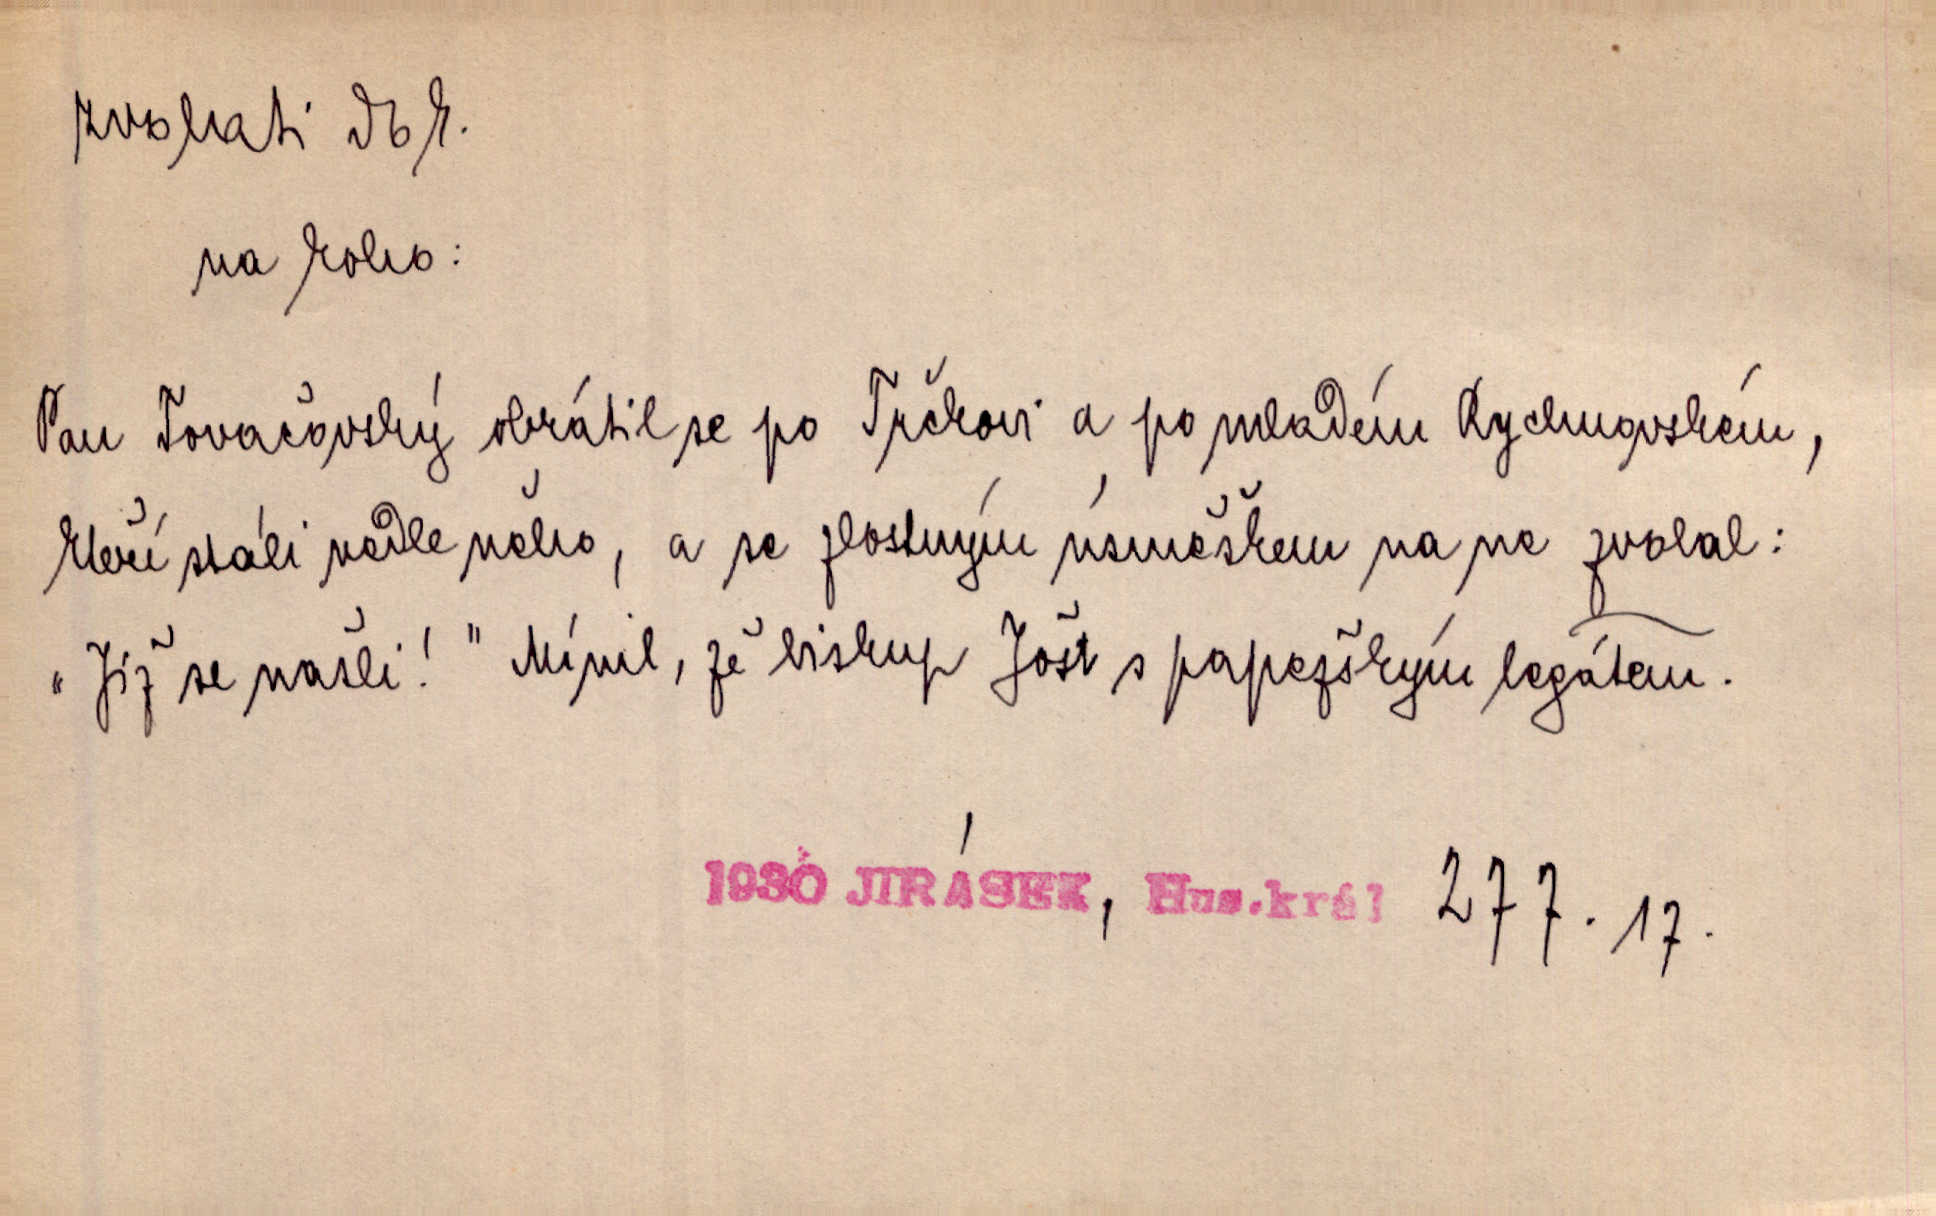 zvolati dok.
na koho:
Pan Tovačovský obrátil se po Trčkovi a po mladém Rychnovském,
kteří stáli vedle něho, a se zlostným úsměškem na ně zvolal:
„Již se našli!" Mínil, že biskup Jošt s papežským legátem.
1930 JIRÁSEK, Hus.král 277.17.